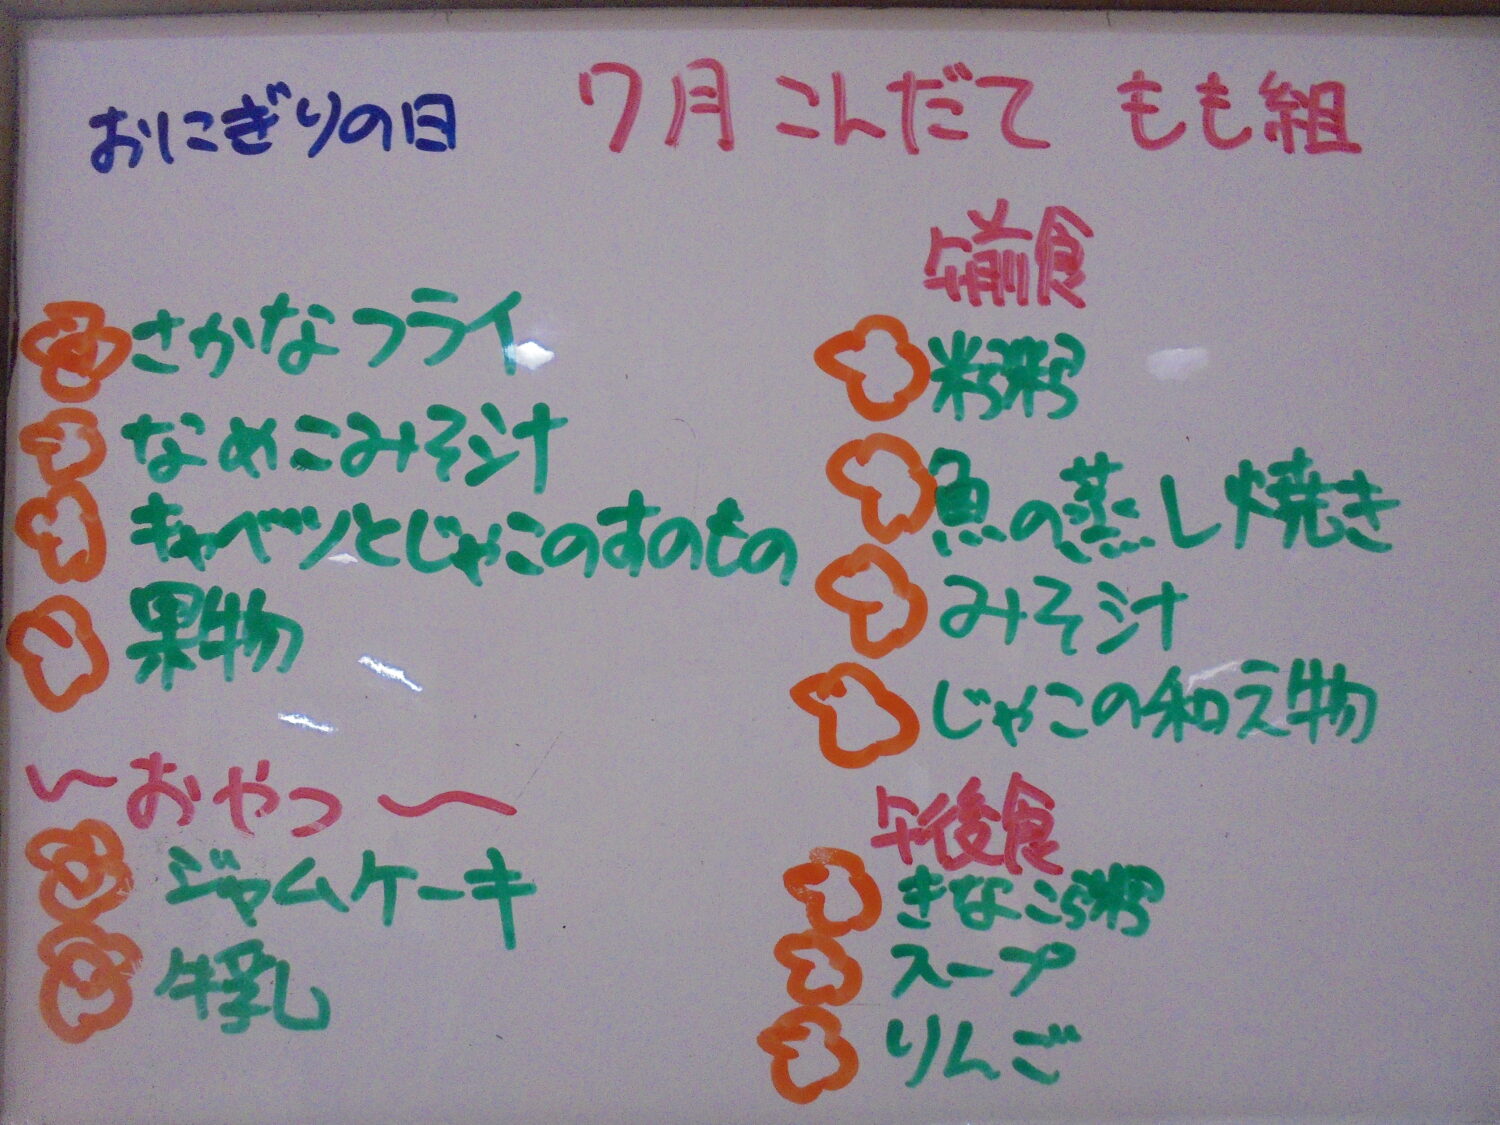 おにぎりの日
7月 こんだて もも組
さかなフライ
なめこみそ汁
キャベツとじゃこのすのもの
果物
〜おやつ〜
ジャムケーキ
牛乳
午前食
粥
魚の蒸し焼き
みそ汁
じゃこの和え物
午後食
きなこ粥
スープ
りんご